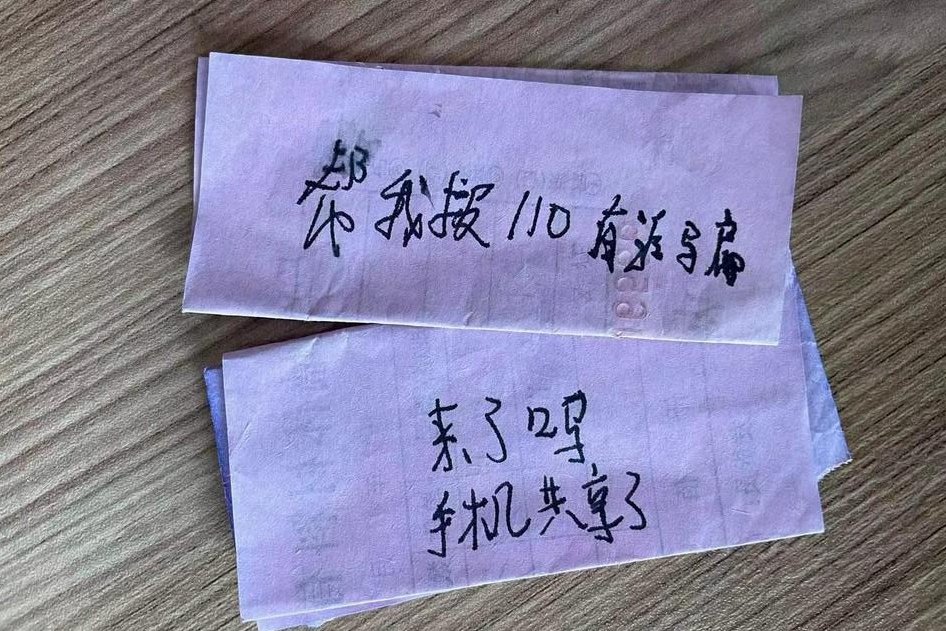 帮我报110有诈骗
来了吗
手机共享了